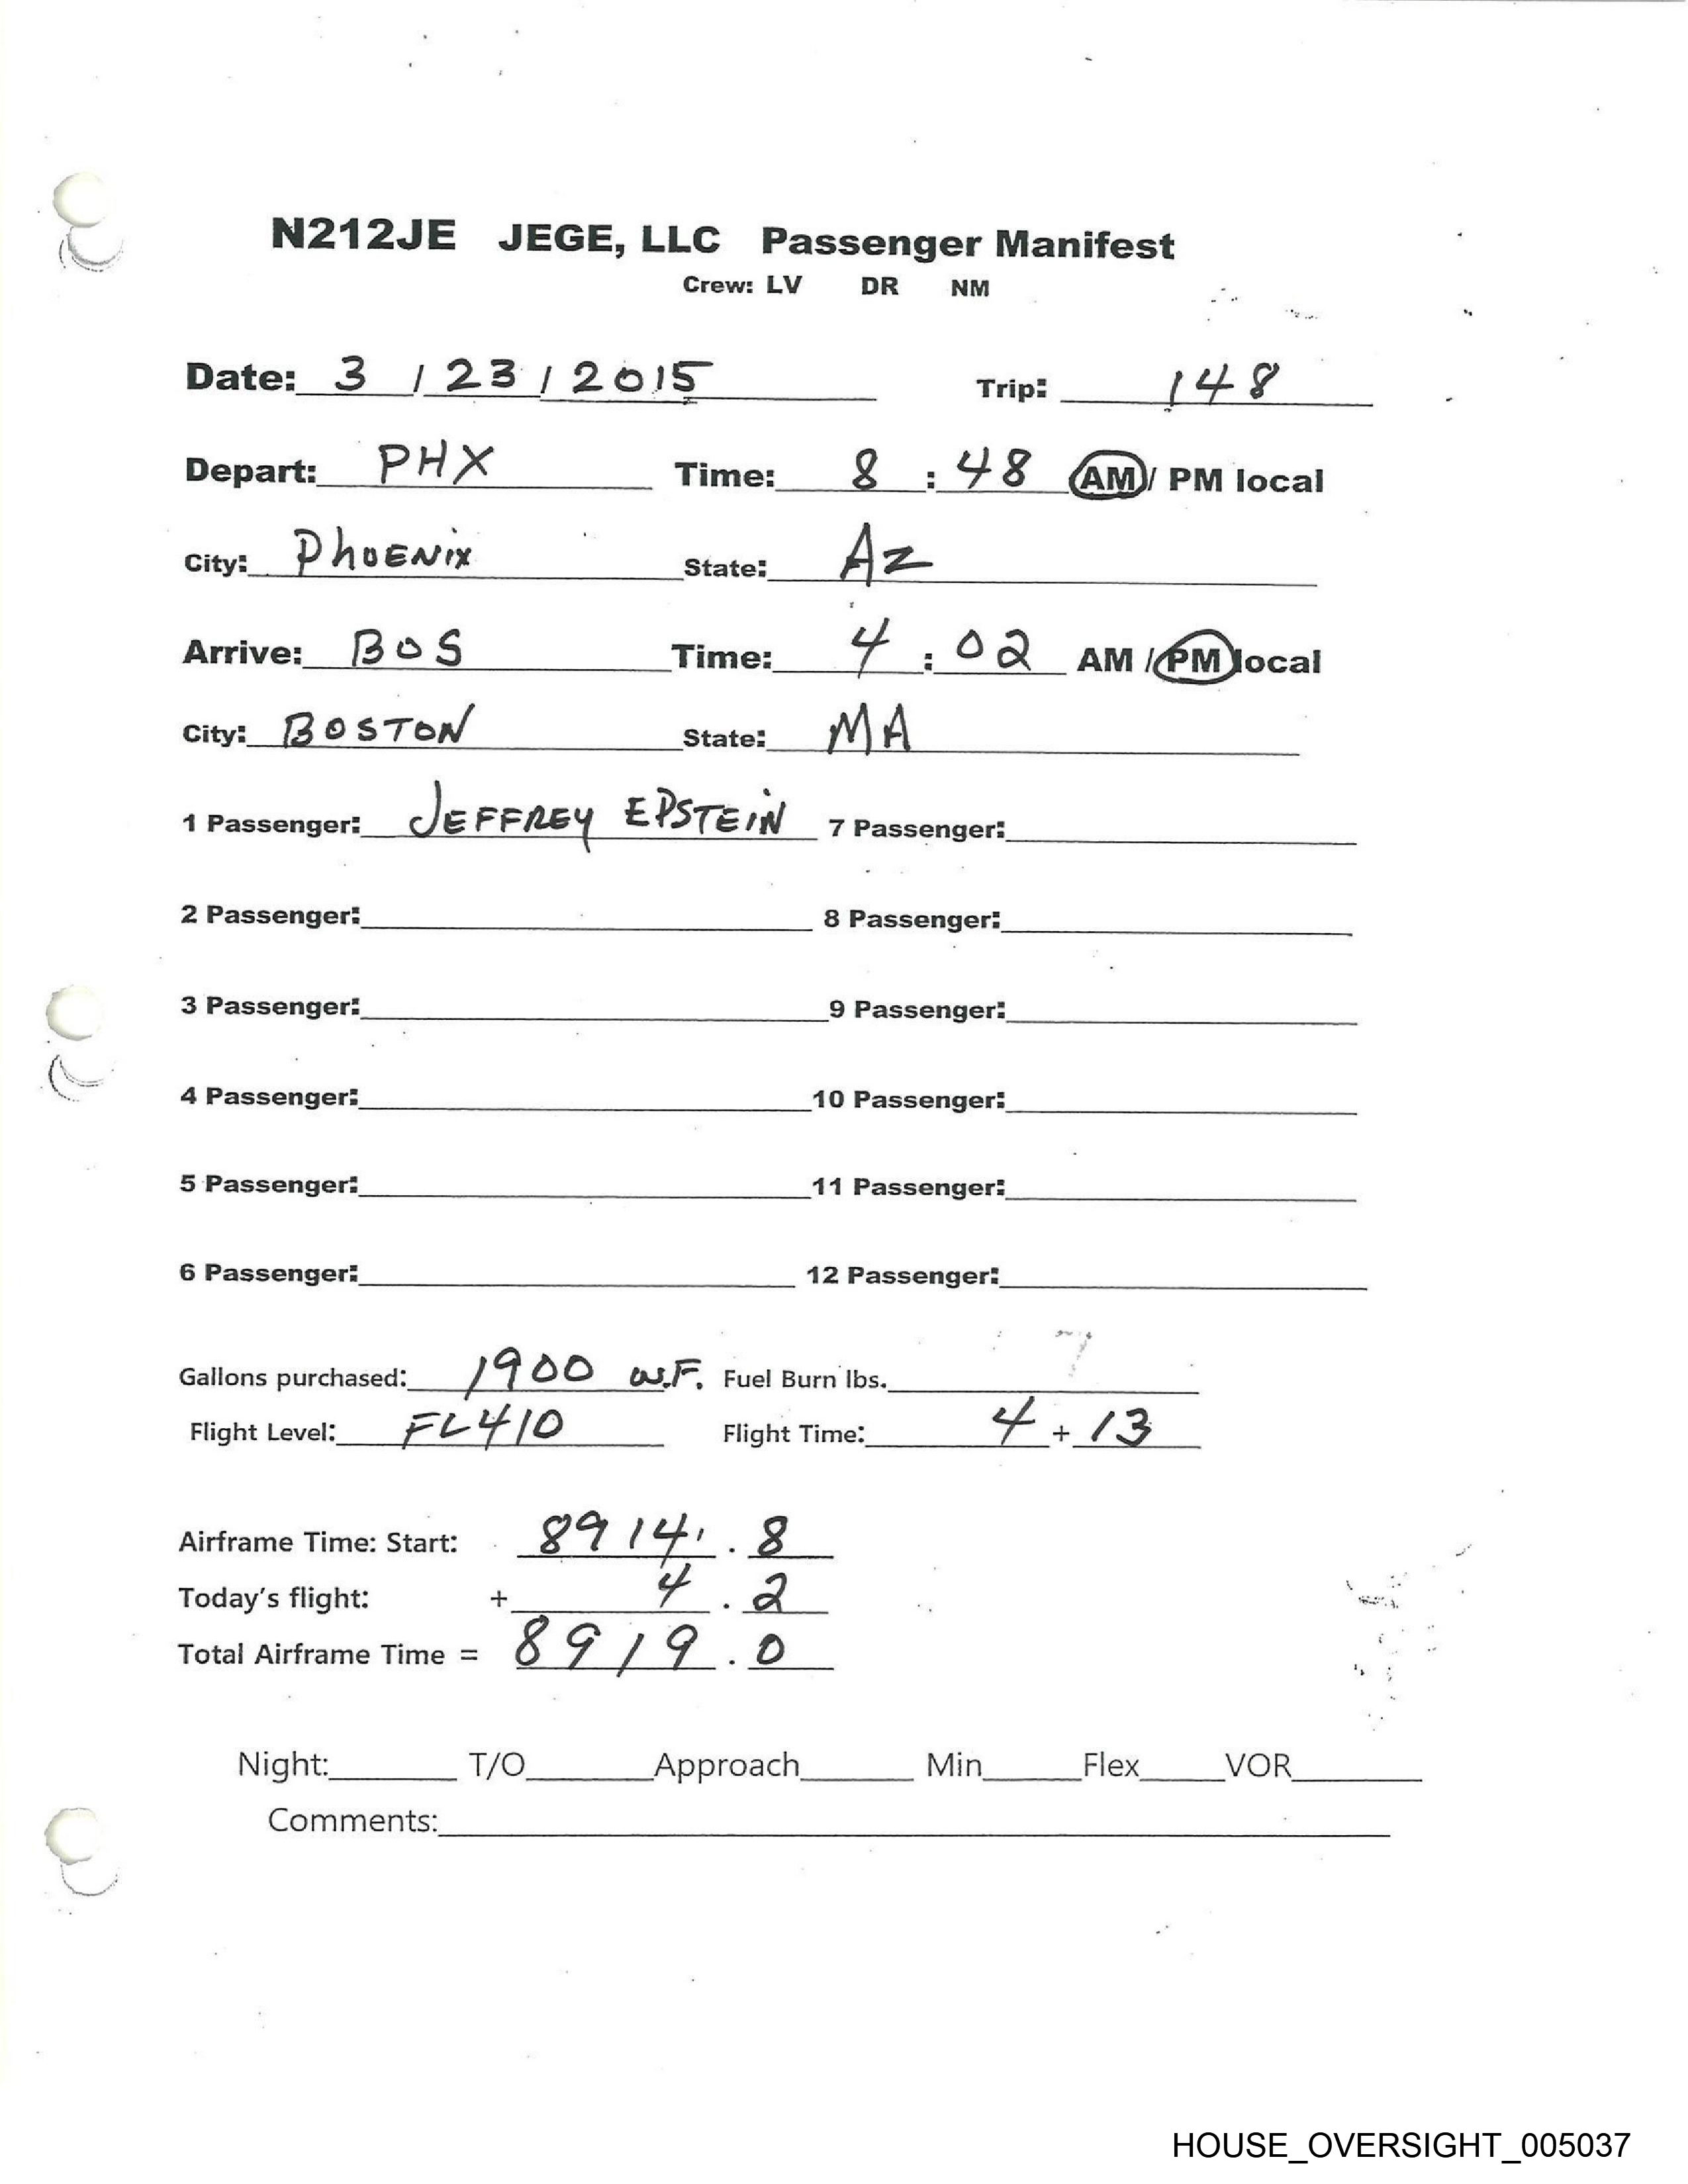 N212JE JEGE, LLC Passenger Manifest
Crew: LV DR NM
Date: 3 / 23 / 2015 Trip: 148
Depart: PHX Time: 8 : 48 AM / PM local
City: PhOENix State: Az
Arrive: BOS Time: 4 : 02 AM / PM local
City: BOSTON State: MA
1 Passenger: JEFFREY EPSTEiN 7 Passenger:
2 Passenger: 8 Passenger:
3 Passenger: 9 Passenger:
4 Passenger: 10 Passenger:
5 Passenger: 11 Passenger:
6 Passenger: 12 Passenger:
Gallons purchased: 1900 W.F. Fuel Burn lbs.
Flight Level: FL410 Flight Time: 4 + 13
Airframe Time: Start: 8914 . 8
Today's flight: + 4 . 2
Total Airframe Time = 8919 . 0
Night: T/O Approach Min Flex VOR
Comments:
HOUSE_OVERSIGHT_005037